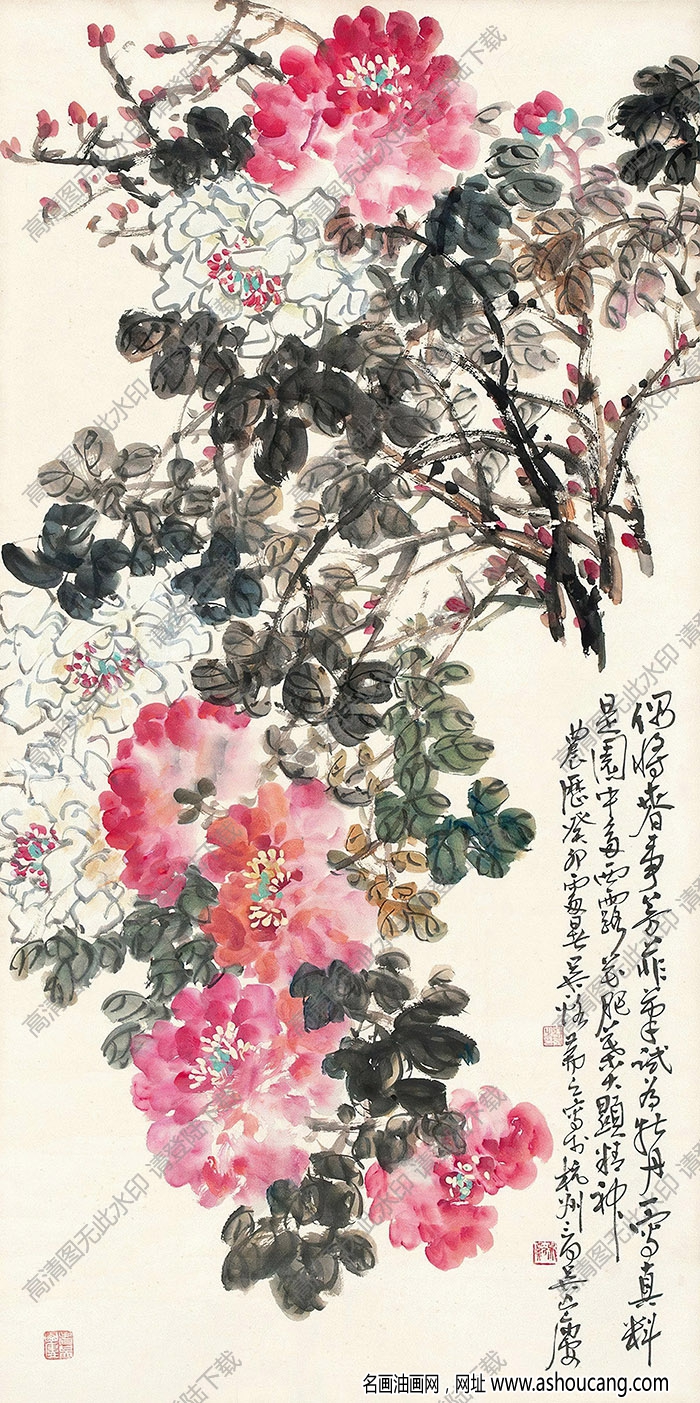 偶將春事芳菲筆試為牡丹一寫真料
是園中多雨露花肥葉大顯精神
農歷癸卯吳谿茀之寫於杭州吳山
高清图无此水印 请登陆下载
名画油画网，网址 www.ashoucang.com